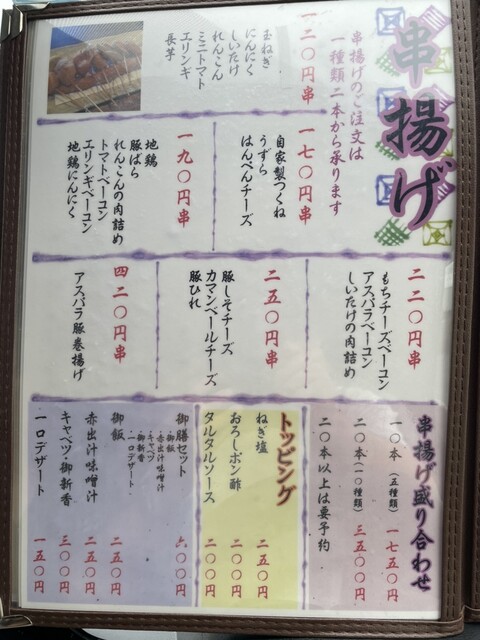 串揚げ
串揚げのご注文は
一種類二本から承ります
一二〇円串
玉ねぎ
にんにく
しいたけ
れんこん
ミニトマト
エリンギ
長芋
一七〇円串
自家製つくね
うずら
はんぺんチーズ
一九〇円串
地鶏
豚ばら
れんこんの肉詰め
トマトベーコン
エリンギベーコン
地鶏にんにく
二二〇円串
もちチーズベーコン
アスパラベーコン
しいたけの肉詰め
二五〇円串
豚しそチーズ
カマンベールチーズ
豚ひれ
四二〇円串
アスパラ豚巻揚げ
串揚げ盛り合わせ
一〇本(五種類) 一七五〇円
二〇本(一〇種類) 三五〇〇円
二〇本以上は要予約
トッピング
ねぎ塩 二五〇円
おろしポン酢 二〇〇円
タルタルソース 二〇〇円
御膳セット 六〇〇円
・御飯
・赤出汁味噌汁
・キャベツ
・御新香
・一口デザート
御飯 二五〇円
赤出汁味噌汁 二五〇円
キャベツ・御新香 三〇〇円
一口デザート 一五〇円